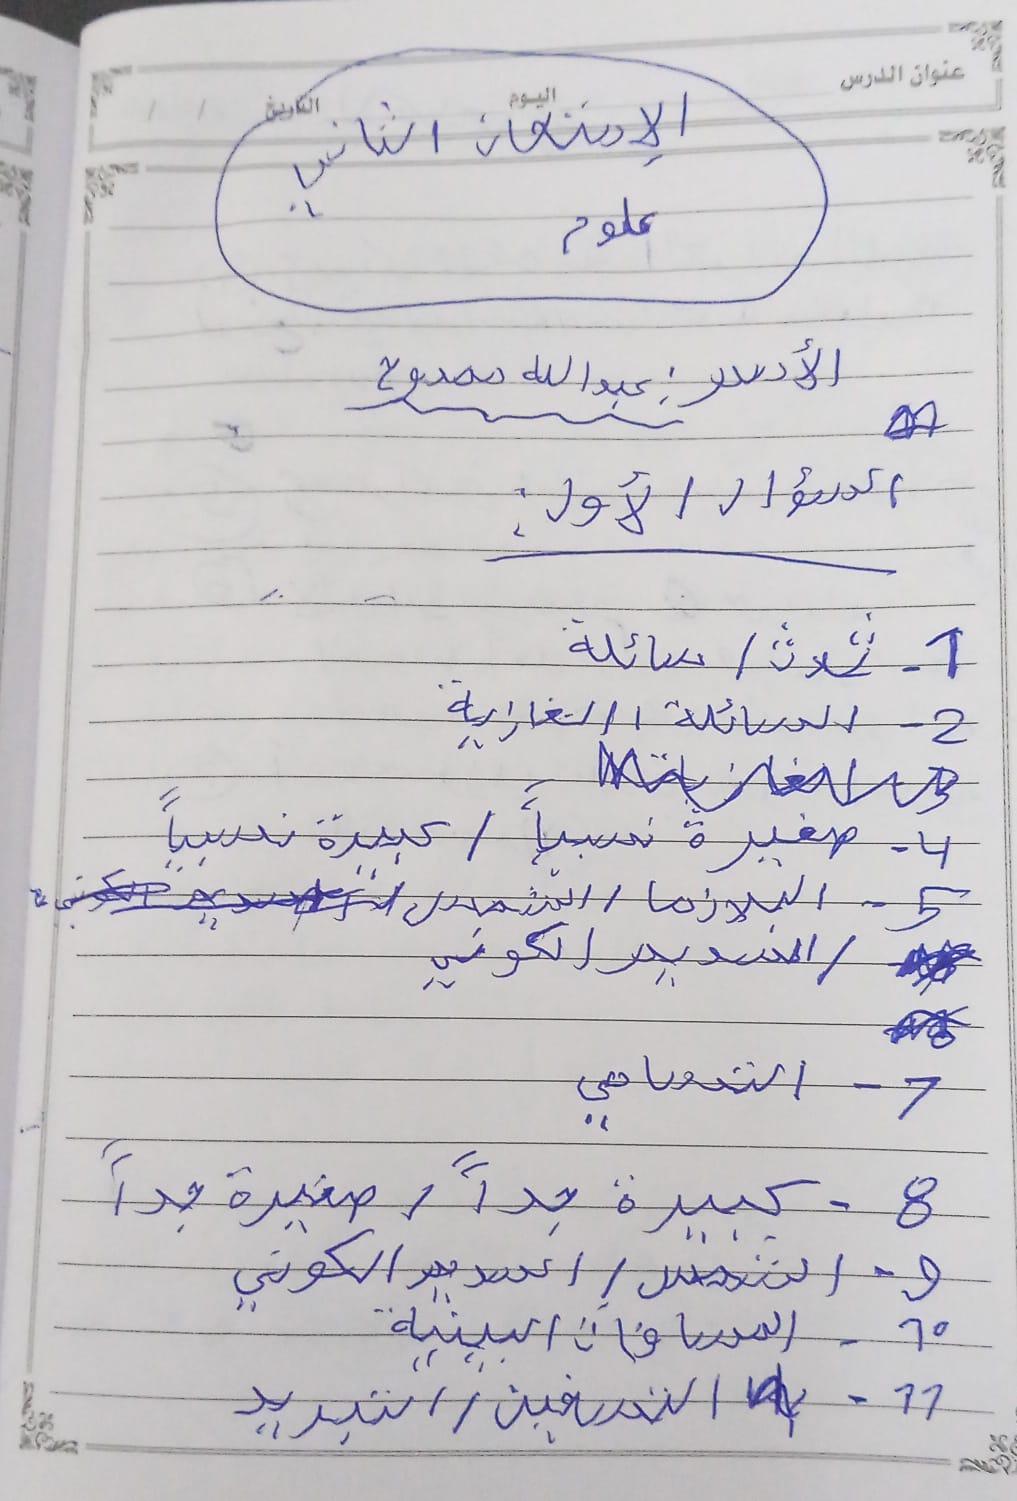 عنوان الدرس اليوم التاريخ / /
الإمتحان الثاني
علوم
الأسم: عبدالله ممدوح
السؤال الأول:
1- ثلاث / سائلة
2- السائلة / الغازية
4- صغيرة نسبياً / كبيرة نسبياً
5- البلازما / الشمس /
/ السديم الكوني
7- التسامي
8- كبيرة جداً / صغيرة جداً
9- الشمس / السديم الكوني
10- المسافات البينية
11- التسخين / التبريد